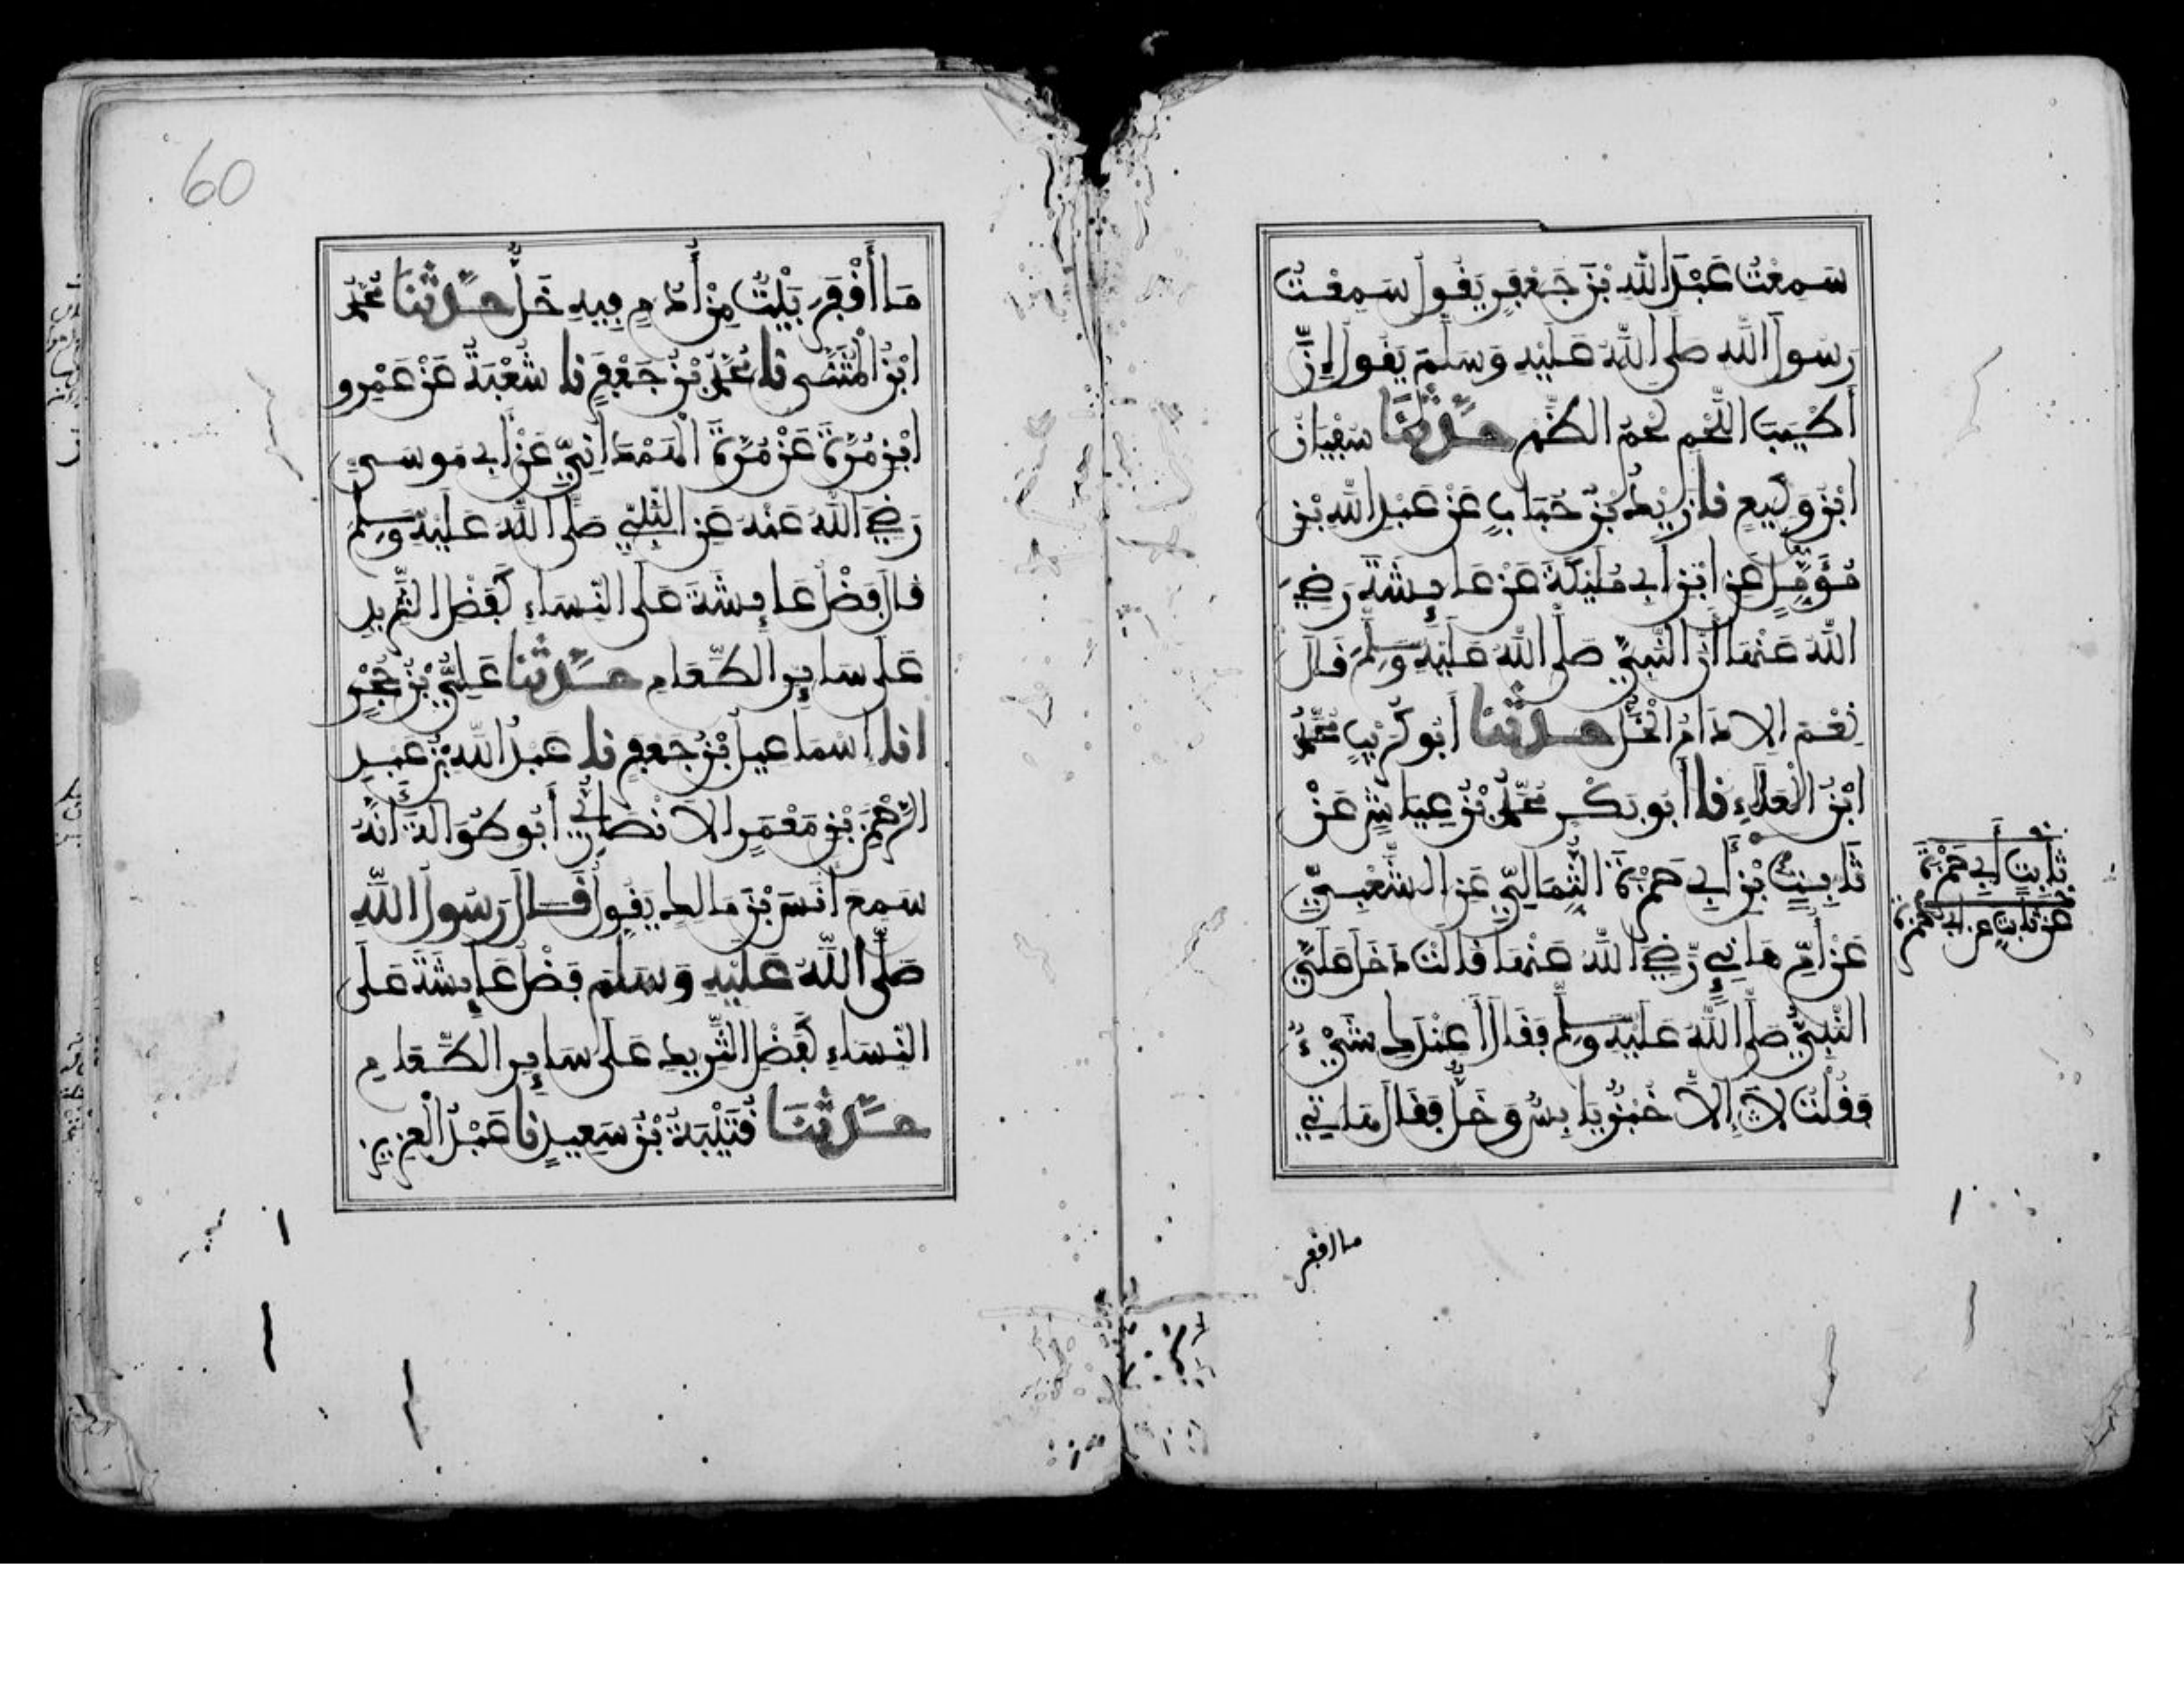 سَمِعْتُ عَبْدَ اللَّهِ بْنَ جَعْفَرٍ يَقُولُ سَمِعْتُ
رَسُولَ اللَّهِ صَلَّى اللَّهُ عَلَيْهِ وَسَلَّمَ يَقُولُ إِنَّ
أَطْيَبَ اللَّحْمِ لَحْمُ الظَّهْرِ حَدَّثَنَا سُفْيَانُ
ابْنُ وَكِيعٍ نا زَيْدُ بْنُ حُبَابٍ عَنْ عَبْدِ اللَّهِ بْنِ
مُؤَمَّلٍ عَنِ ابْنِ أَبِي مُلَيْكَةَ عَنْ عَائِشَةَ رَضِيَ
اللَّهُ عَنْهَا أَنَّ النَّبِيَّ صَلَّى اللَّهُ عَلَيْهِ وَسَلَّمَ قَالَ
نِعْمَ الإِدَامُ الْخَلُّ حَدَّثَنَا أَبُو كُرَيْبٍ مُحَمَّدُ
ابْنُ الْعَلَاءِ نا أَبُو بَكْرِ مُحَمَّدُ بْنُ عَيَّاشٍ عَنْ
ثَابِتٍ بْنِ أَبِي حَمْزَةَ الثُّمَالِيِّ عَنِ الشَّعْبِيِّ
عَنْ أُمِّ هَانِئٍ رَضِيَ اللَّهُ عَنْهَا قَالَتْ دَخَلَ عَلَيَّ
النَّبِيُّ صَلَّى اللَّهُ عَلَيْهِ وَسَلَّمَ فَقَالَ أَعِنْدَكِ شَيْءٌ
فَقُلْتُ لَا إِلَّا خُبْزٌ يَابِسٌ وَخَلٌّ فَقَالَ هَاتِي
ثَابِتٍ أَبِي حَمْزَةَ
عَنْ ثَابِتٍ عن أبي حمزة
ما أقفر
60
مَا أَقْفَرَ بَيْتٌ مِنْ أُدْمٍ فِيهِ خَلٌّ حَدَّثَنَا مُحَمَّدُ
ابْنُ الْمُثَنَّى نا مُحَمَّدُ بْنُ جَعْفَرٍ نا شُعْبَةُ عَنْ عَمْرِو
ابْنِ مُرَّةَ عَنْ مُرَّةَ الْهَمْدَانِيِّ عَنْ أَبِي مُوسَى
رَضِيَ اللَّهُ عَنْهُ عَنِ النَّبِيِّ صَلَّى اللَّهُ عَلَيْهِ وَسَلَّمَ
قَالَ فَضْلُ عَائِشَةَ عَلَى النِّسَاءِ كَفَضْلِ الثَّرِيدِ
عَلَى سَائِرِ الطَّعَامِ حَدَّثَنَا عَلِيُّ بْنُ حُجْرٍ
انا إِسْمَاعِيلُ بْنُ جَعْفَرٍ نا عَبْدُ اللَّهِ بْنُ عَبْدِ
الرَّحْمَنِ بْنِ مَعْمَرٍ الأَنْصَارِيُّ أَبُو طُوَالَةَ أَنَّهُ
سَمِعَ أَنَسَ بْنَ مَالِكٍ يَقُولُ قَالَ رَسُولُ اللَّهِ
صَلَّى اللَّهُ عَلَيْهِ وَسَلَّمَ فَضْلُ عَائِشَةَ عَلَى
النِّسَاءِ كَفَضْلِ الثَّرِيدِ عَلَى سَائِرِ الطَّعَامِ
حَدَّثَنَا قُتَيْبَةُ بْنُ سَعِيدٍ نا عَبْدُ الْعَزِيزِ